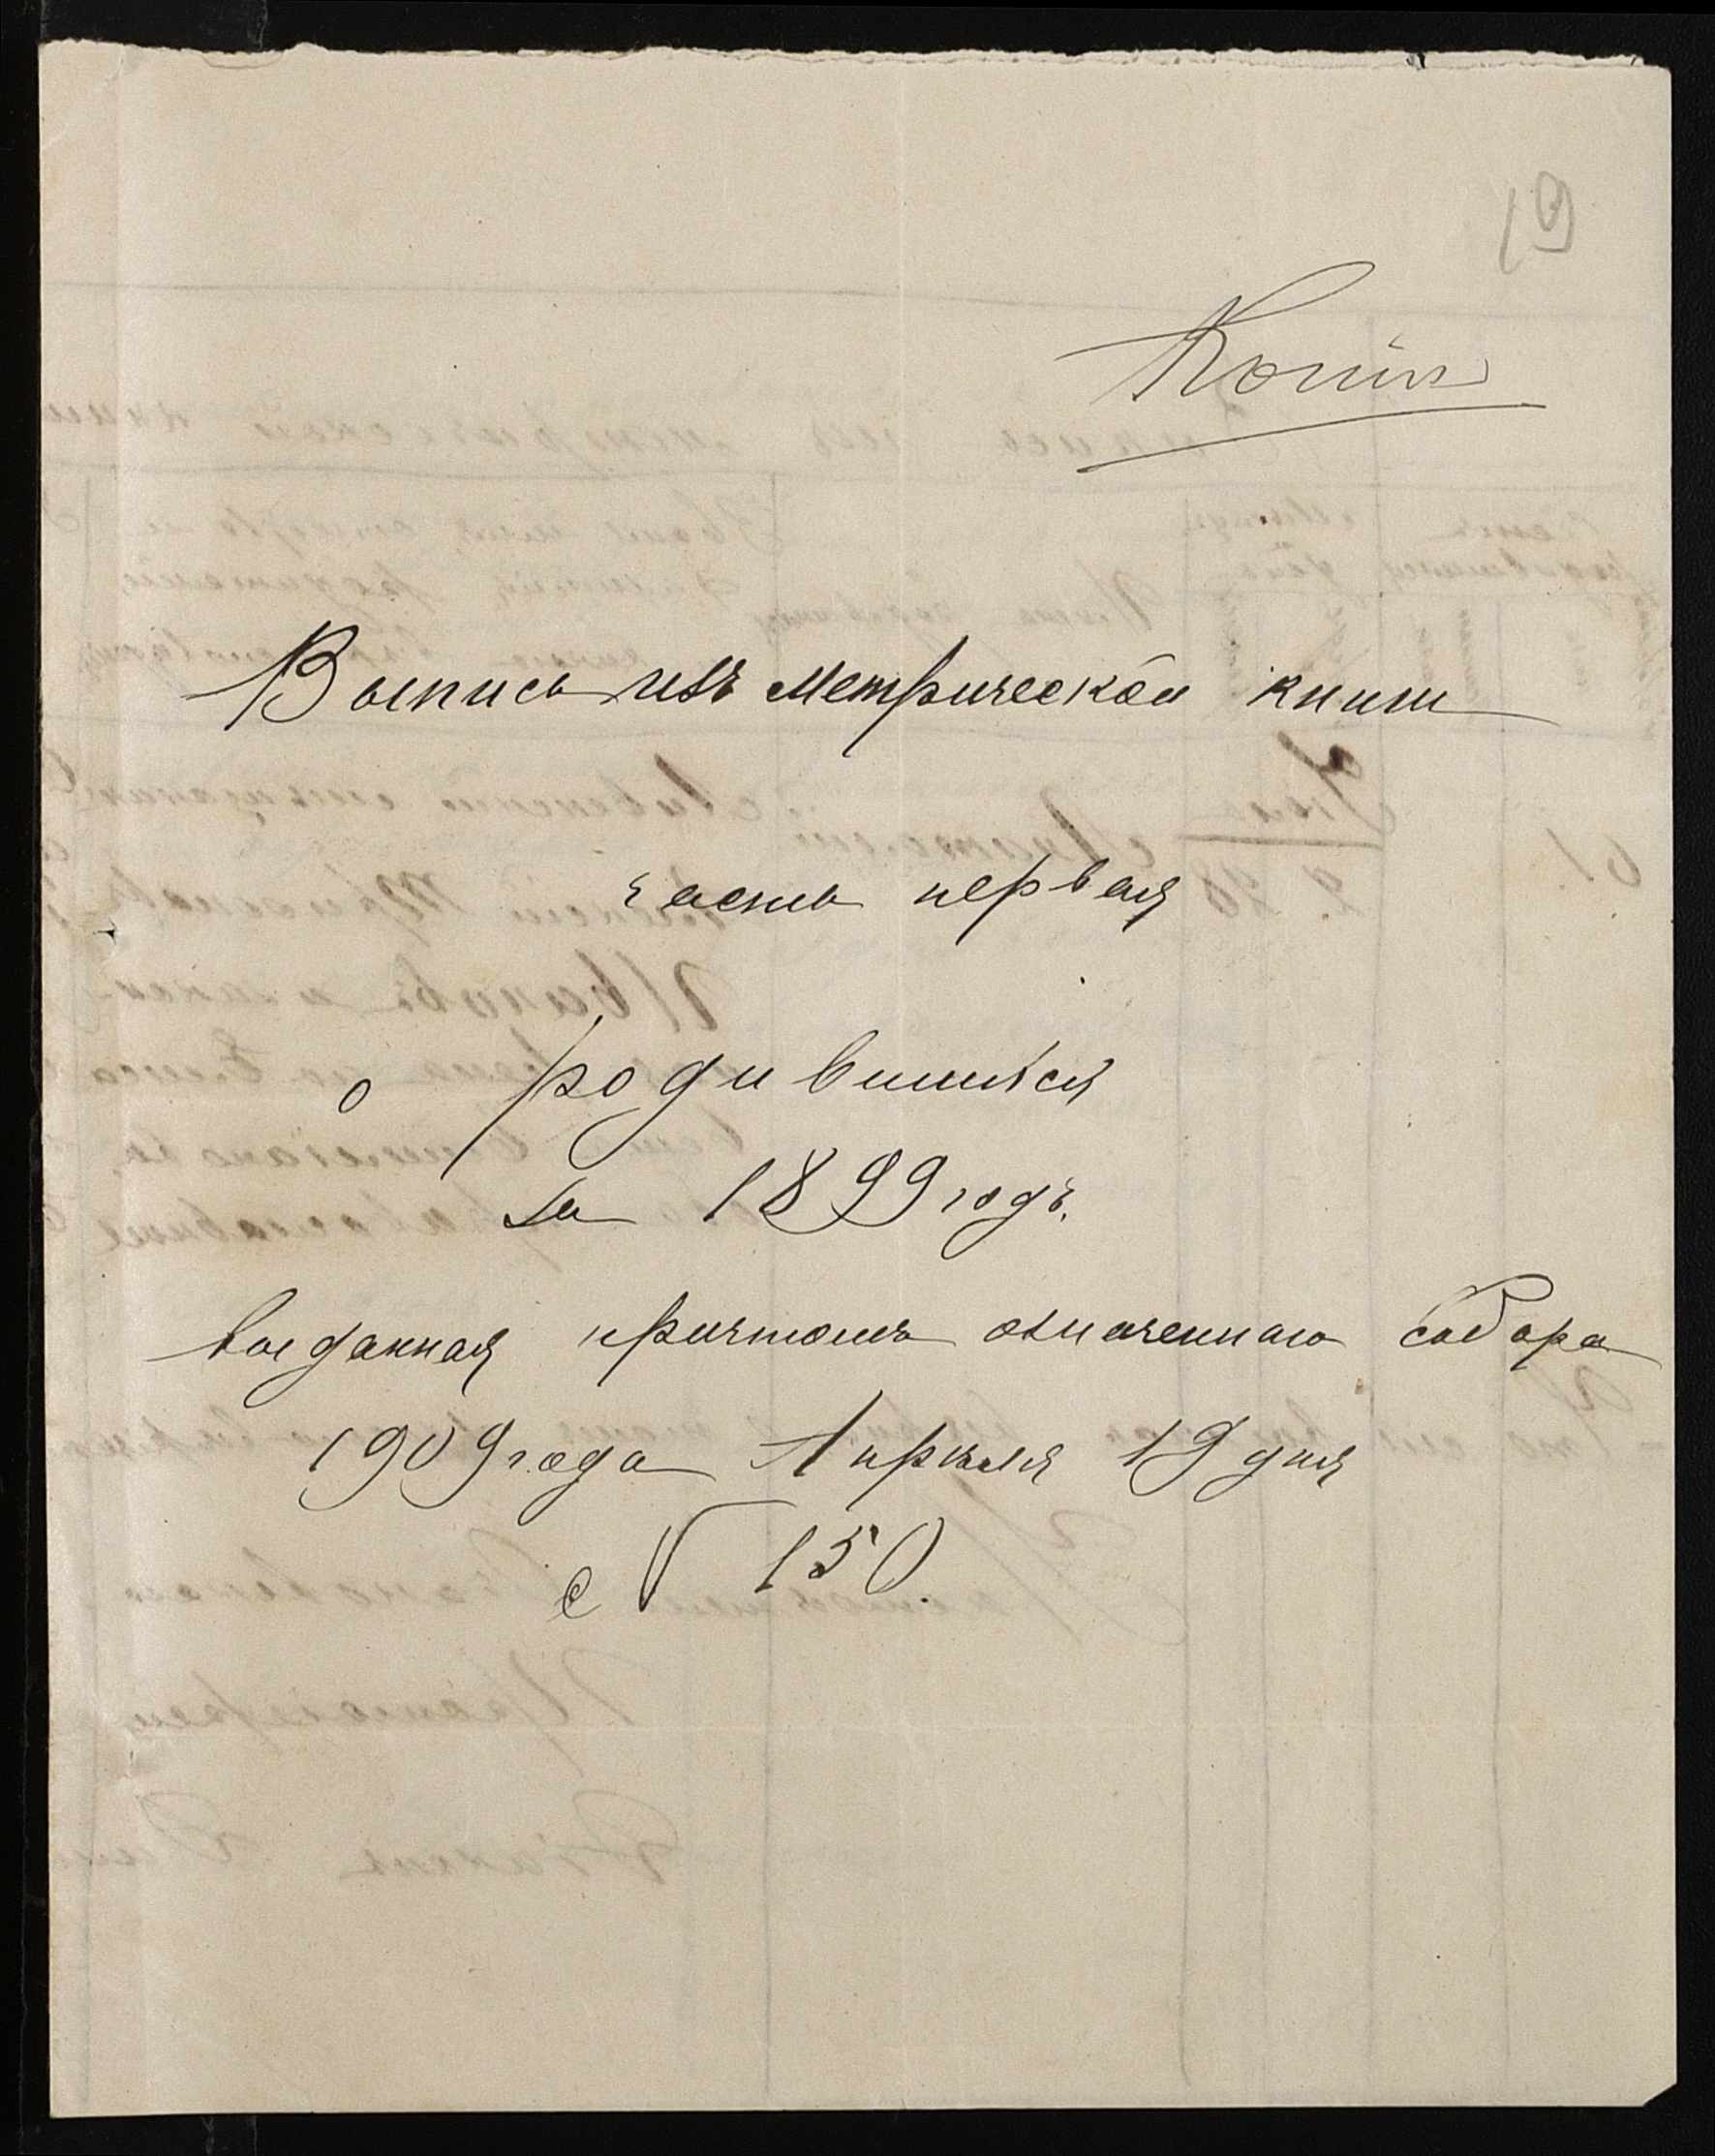 19
Копія
Выпись изъ метрической книги
часть первая
о родившихся
за 1899 годъ.
выданная причтомъ означеннаго собора
1909 года Апрѣля 19 дня
№ 150.